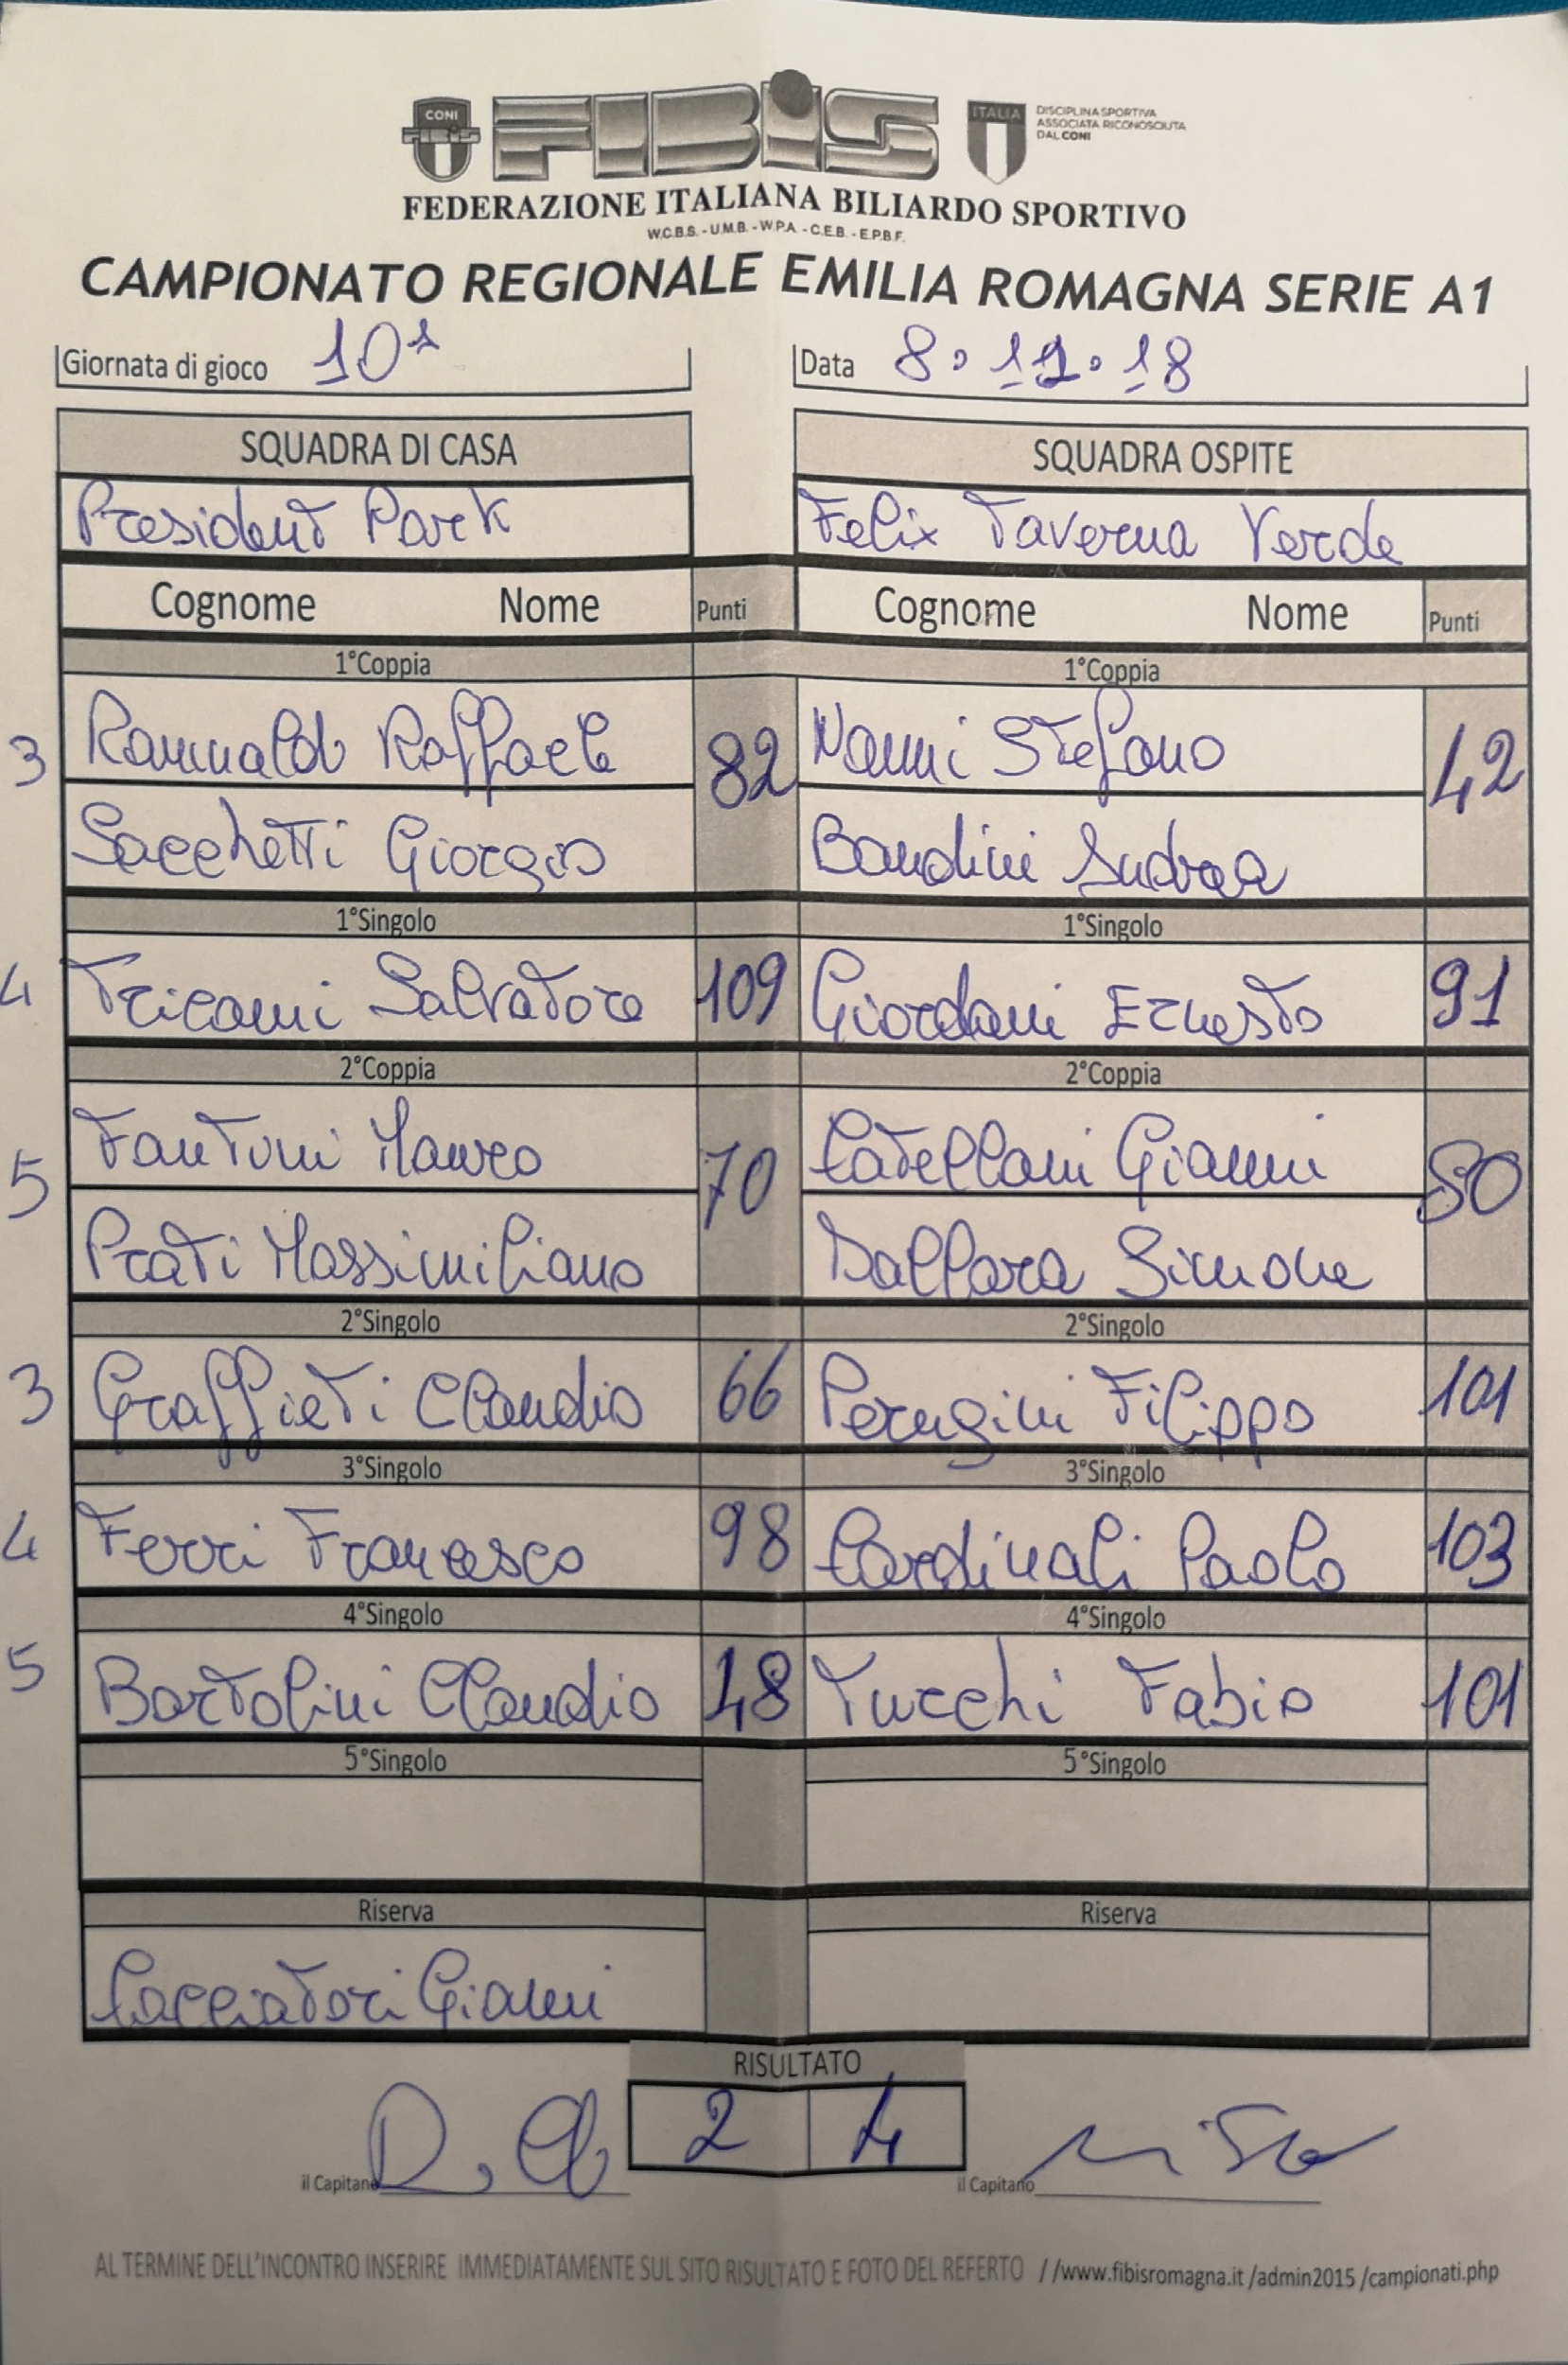 CONI
FIBIS
FIBiS
ITALIA
DISCIPLINA SPORTIVA
ASSOCIATA RICONOSCIUTA
DAL CONI
FEDERAZIONE ITALIANA BILIARDO SPORTIVO
W.C.B.S. - U.M.B. - W.P.A. - C.E.B. - E.P.B.F.
CAMPIONATO REGIONALE EMILIA ROMAGNA SERIE A1
Giornata di gioco 10ª Data 8.12.18
SQUADRA DI CASA SQUADRA OSPITE
President Park Felix Taverna Verde
Cognome Nome Punti Cognome Nome Punti
1°Coppia 1°Coppia
3 Raffaele 82 Nanni Stefano 42
Sacchetti Giorgio Bandini Andrea
1°Singolo 1°Singolo
4 Tricomi Salvatore 109 Giordani Ernesto 91
2°Coppia 2°Coppia
5 Fantoni Mauro 70 Catellani Gianni 80
Prati Massimiliano Dallara Simone
2°Singolo 2°Singolo
3 Graffieti Claudio 66 Perugini Filippo 101
3°Singolo 3°Singolo
4 Ferri Francesco 98 Cardinali Paolo 103
4°Singolo 4°Singolo
5 Bartolini Claudio 48 Tucchi Fabio 101
5°Singolo 5°Singolo
Riserva Riserva
Cacciatori Gianni
RISULTATO
2 4
il Capitano il Capitano
AL TERMINE DELL'INCONTRO INSERIRE IMMEDIATAMENTE SUL SITO RISULTATO E FOTO DEL REFERTO //www.fibisromagna.it /admin2015 /campionati.php